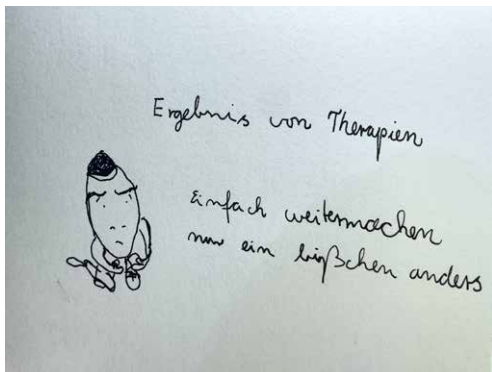 Ergebnis von Therapien
Einfach weitermachen
nur ein bißchen anders